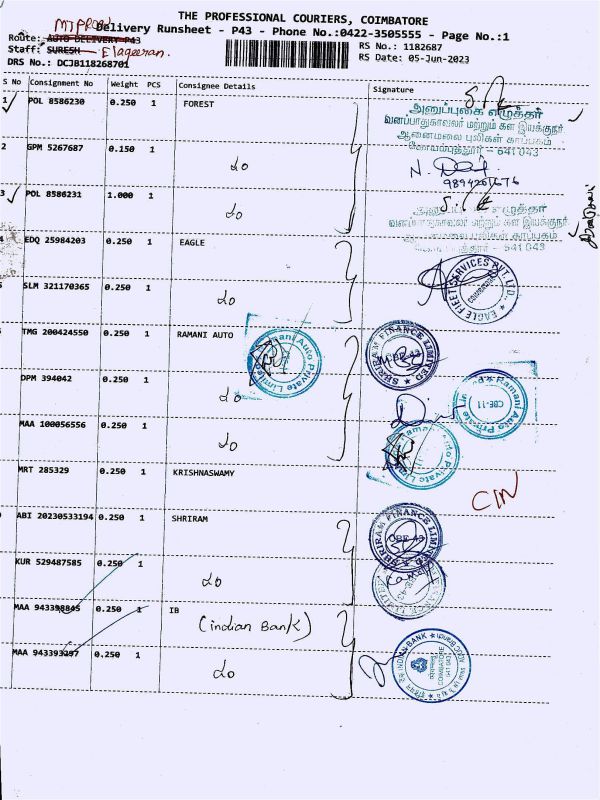 THE PROFESSIONAL COURIERS, COIMBATORE
Delivery Runsheet - P43 - Phone No.:0422-3505555 - Page No.:1
Route: AUTO DELIVERY P43
RS No.: 1182687
Staff: SURESH - Elaqeeran.
RS Date: 05-Jun-2023
DRS No.: DCJB118268701
S No Consignment No Weight PCS Consignee Details Signature
1 POL 8586230 0.250 1 FOREST
அனுப்புகை எழுத்தர்
வனப்பாதுகாவலர் மற்றும் கள இயக்குநர்
ஆனைமலை புலிகள் காப்பகம்
கோயம்புத்தூர் - 641 043
2 GPM 5267687 0.150 1 do
3 POL 8586231 1.000 1 do
எழுத்தர்
வனப்பாதுகாவலர் மற்றும் கள இயக்குநர்
ஆனைமலை புலிகள் காப்பகம்
கோயம்புத்தூர் - 641 043
4 EDQ 25984203 0.250 1 EAGLE
SLM 321170365 0.250 1 do
EAGLE FLEET SERVICES PVT. LTD.,
COIMBATORE
TMG 200424550 0.250 1 RAMANI AUTO
Ramani Auto Private Limited
SHRIRAM FINANCE LIMITED
CBE-43
DPM 394042 0.250 1 do
Ramani Auto Private Limited
CBE-11
MAA 100056556 0.250 1 do
Ramani Auto Private Limited
MRT 285329 0.250 1 KRISHNASWAMY
ABI 20230533194 0.250 1 SHRIRAM
SHRIRAM FINANCE LIMITED
CBE-43
KUR 529487585 0.250 1 do
MAA 943398845 0.250 1 IB
(indian Bank)
MAA 943393297 0.250 1 do
INDIAN BANK
COIMBATORE
641 043